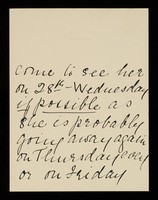 come to see her
on 28th - Wednesday
if possible as
she is probably
going away again
on Thursday
or on Friday